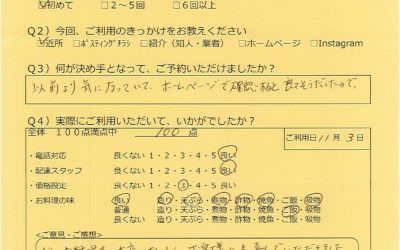 初めて □2～5回 □6回以上
Q2）今回、ご利用のきっかけをお教えください
☑近所 □ﾎﾟｽﾃｨﾝｸﾞﾁﾗｼ □紹介（知人・業者） □ホームページ □Instagram
Q3）何が決め手となって、ご予約いただけましたか？
以前より気になっていて、ホームページで確認すると良さそうだったので。
Q4）実際にご利用いただいて、いかがでしたか？
全体 １００点満点中 100 点
ご利用日 11 月 3 日
・電話対応 良くない 1・2・3・4・5 良い
・配達スタッフ 良くない 1・2・3・4・5 良い
・価格設定 良くない 1・2・③・4・5 良い
・お料理の味 良い 造り・天ぷら・煮物・酢物・焼魚・ご飯・吸物
普通 造り・天ぷら・煮物・酢物・焼魚・ご飯・吸物
良くない 造り・天ぷら・煮物・酢物・焼魚・ご飯・吸物
＜ご意見・ご感想＞